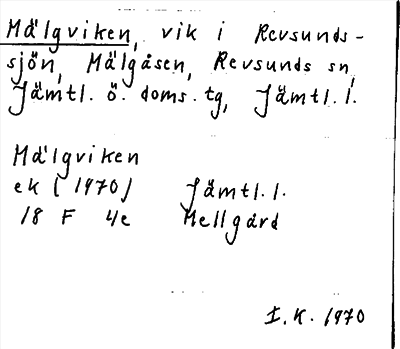 Mälgviken, vik i Revsunds-
sjön, Mälgåsen, Revsunds sn,
Jämtl. ö. doms. tg, Jämtl. l.
Mälgviken
ek (1970) Jämtl. l.
18 F 4e Mellgård
I. K. 1970